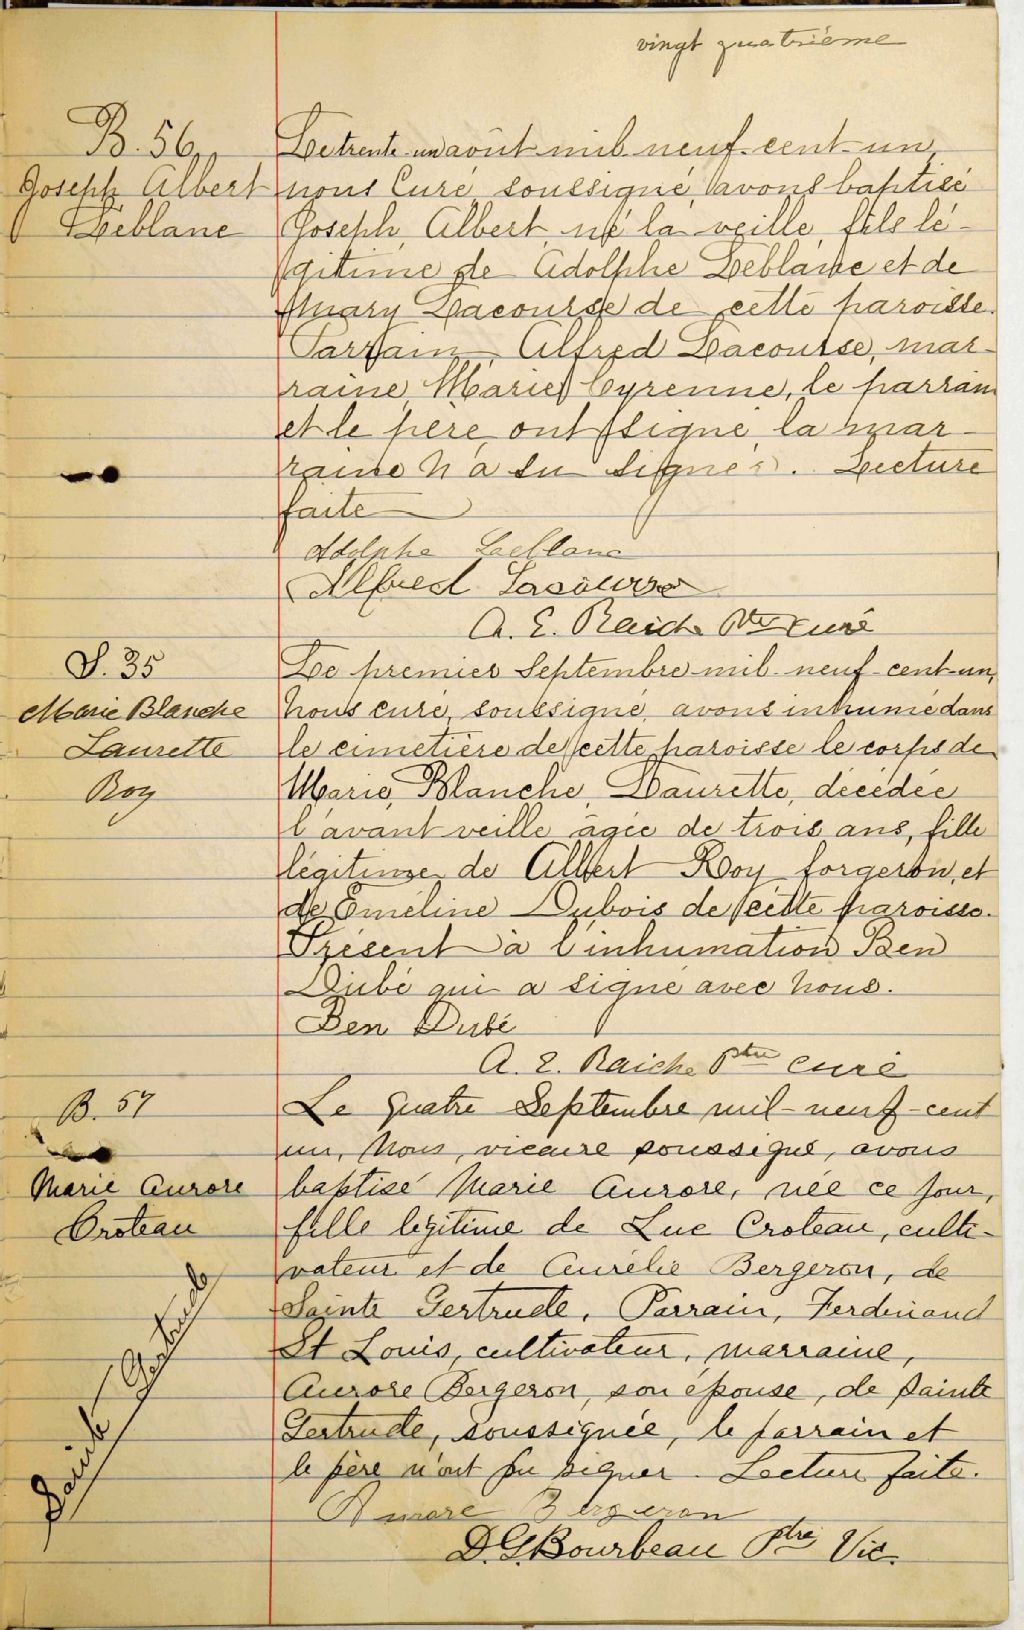 vingt quatrième
B. 56
Joseph Albert
Leblanc
Le trente-un août mil-neuf-cent-un,
nous Curé, soussigné, avons baptisé
Joseph, Albert, né la veille, fils lé-
gitime de Adolphe Leblanc et de
Mary Lacourse de cette paroisse.
Parrain, Alfred Lacourse, mar-
raine, Marie Cyrenne, le parrain
et le père ont signé, la mar-
raine n'a su signer. Lecture
faite
Adolphe Leblanc
Alfred Lacourse
A. E. Raiche Ptre curé
S. 35
Marie Blanche
Laurette
Roy
Le premier Septembre mil-neuf-cent-un,
nous curé, soussigné, avons inhumé dans
le cimetière de cette paroisse le corps de
Marie, Blanche, Laurette, décédée
l'avant veille âgée de trois ans, fille
légitime de Albert Roy forgeron, et
de Eméline Dubois de cette paroisse.
Présent à l'inhumation Ben
Dubé qui a signé avec nous.
Ben Dubé
A. E. Raiche Ptre curé
B. 57
Marie Aurore
Croteau
Sainte Gertrude
Le quatre Septembre mil-neuf-cent
un, Nous, vicaire soussigné, avons
baptisé Marie Aurore, née ce jour,
fille légitime de Luc Croteau, culti-
vateur et de Aurélie Bergeron, de
Sainte Gertrude. Parrain, Ferdinand
St Louis, cultivateur, marraine,
Aurore Bergeron, son épouse, de Sainte
Gertrude, soussignée, le parrain et
le père n'ont pu signer. Lecture faite.
Aurore Bergeron
D.G. Bourbeau Ptre Vic.